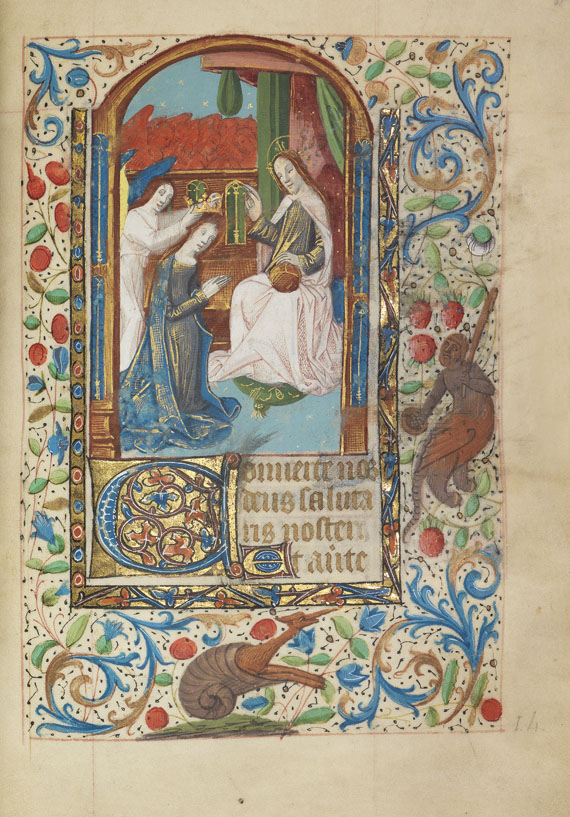 Conuerte nos
deus saluta
ris noster
Et auerte
14